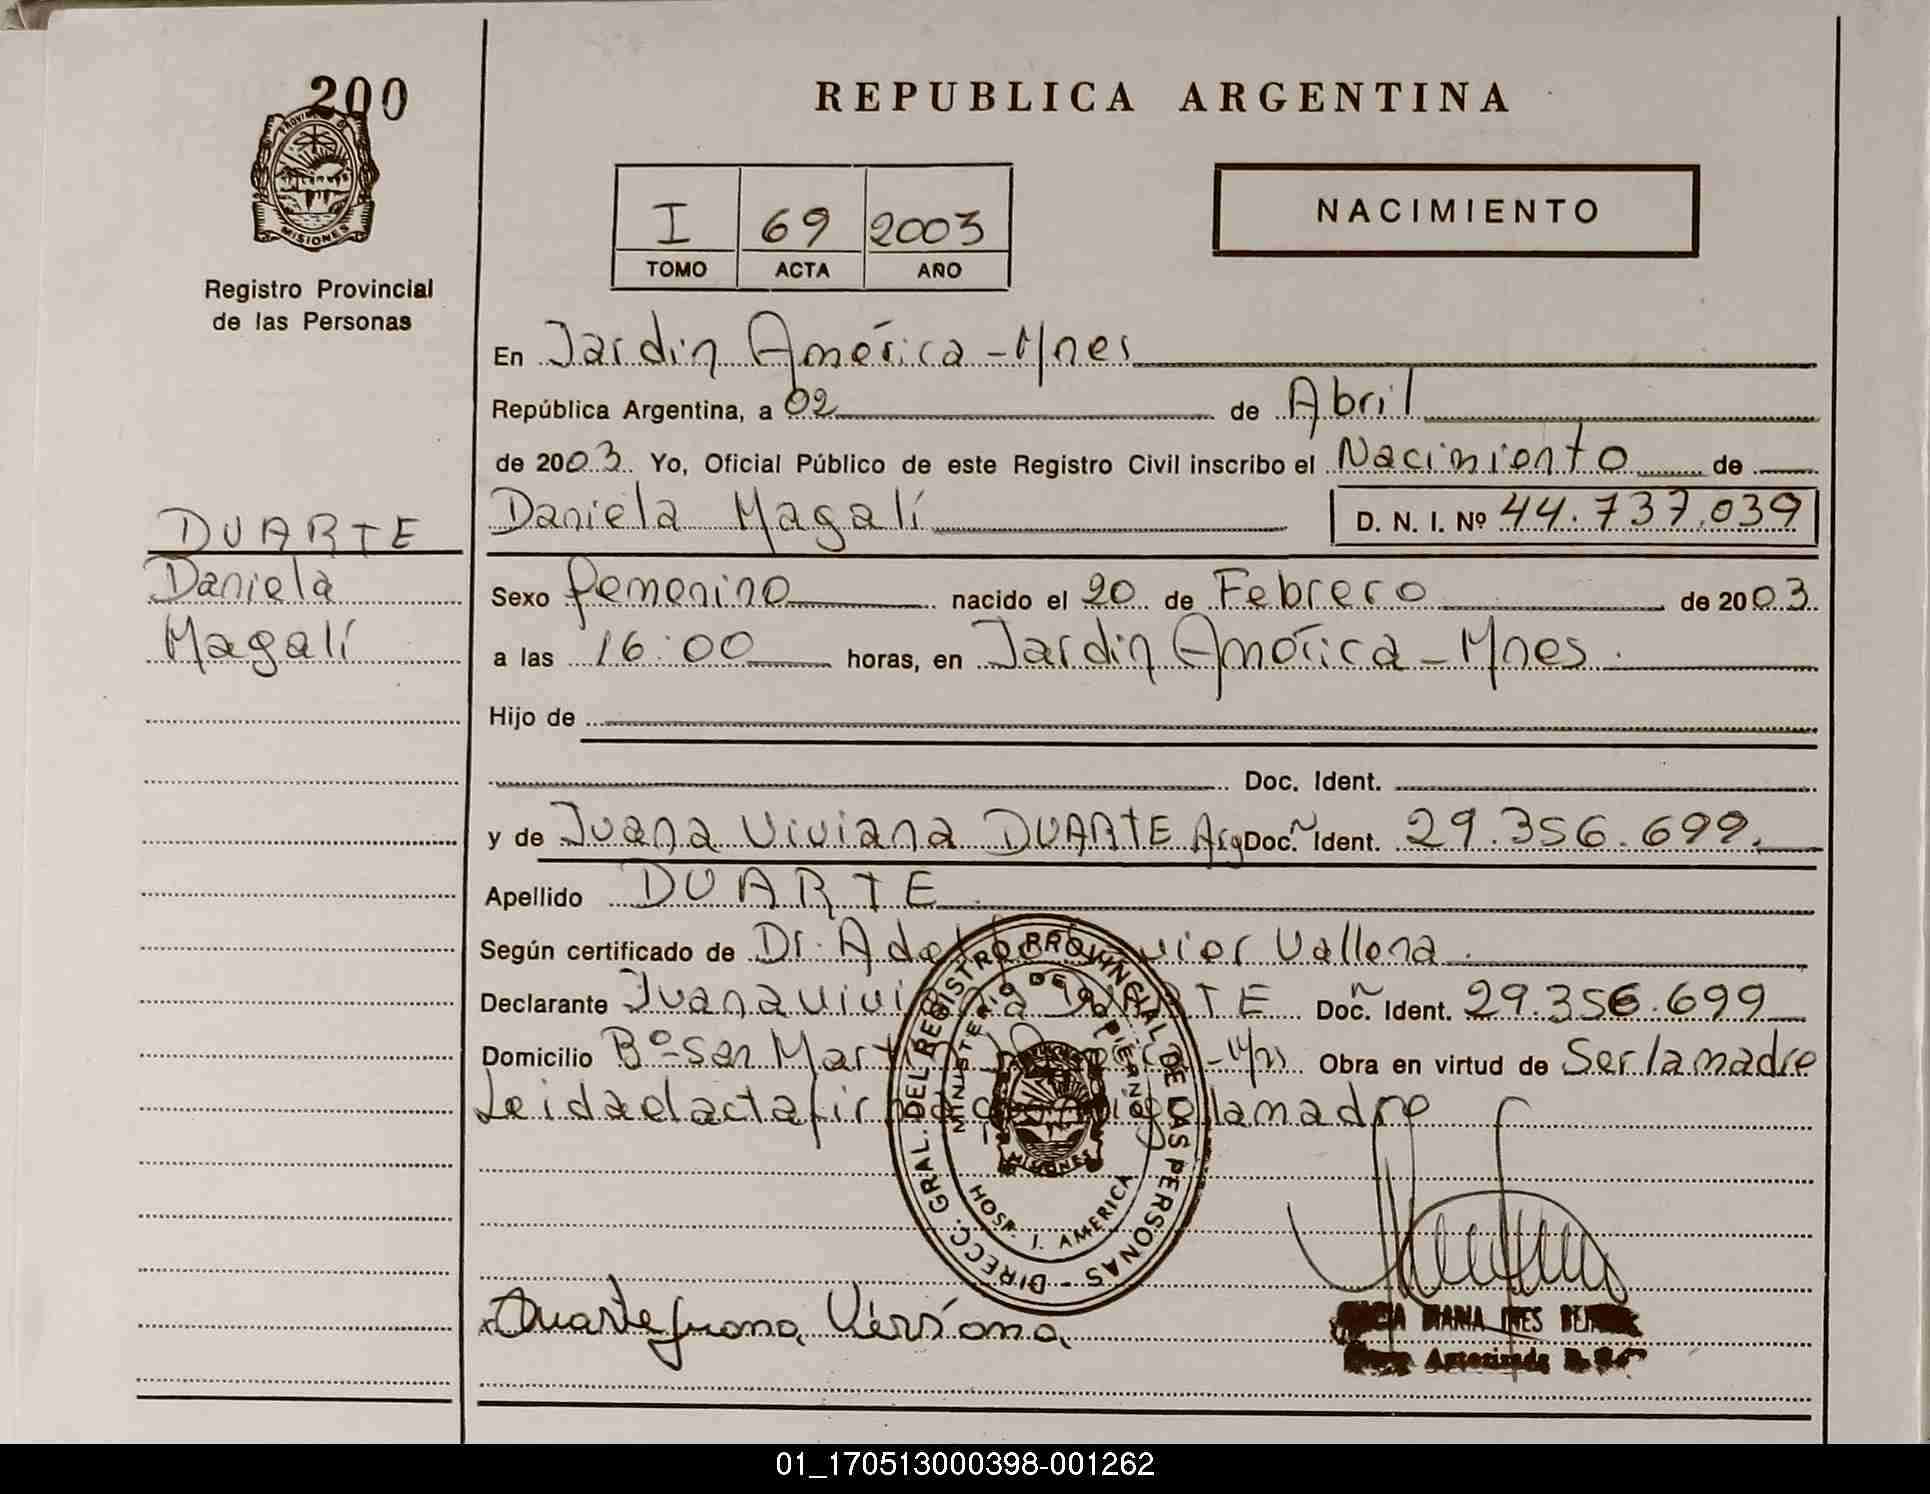 200
PROVINCIA DE
MISIONES
Registro Provincial
de las Personas
REPUBLICA ARGENTINA
I 69 2003
TOMO ACTA AÑO
NACIMIENTO
En Jardin América - Mnes
República Argentina, a 02 de Abril
de 2003. Yo, Oficial Público de este Registro Civil inscribo el Nacimiento de
DUARTE
Daniela
Magalí
Daniela Magalí D. N. I. Nº 44.737.039
Sexo femenino nacido el 20 de Febrero de 2003.
a las 16:00 horas, en Jardin América - Mnes.
Hijo de
Doc. Ident.
y de Juana Viviana DUARTE Arg Doc.n Ident. 29.356.699.
Apellido DUARTE
Según certificado de Dr. Vallena
Declarante Juana Viviana DUARTE Doc.n Ident. 29.356.699
Domicilio Bº San Martin J. América - Mns Obra en virtud de Ser la madre
Leida el acta firma conmigo la madre
DIRECC. GRAL. DEL REGISTRO PROVINCIAL DE LAS PERSONAS -
MINISTERIO DE GOBIERNO
MISIONES
HOSP. J. AMERICA
Duarte Juana Viviana
MARIA INES
Autorizada
01_170513000398-001262